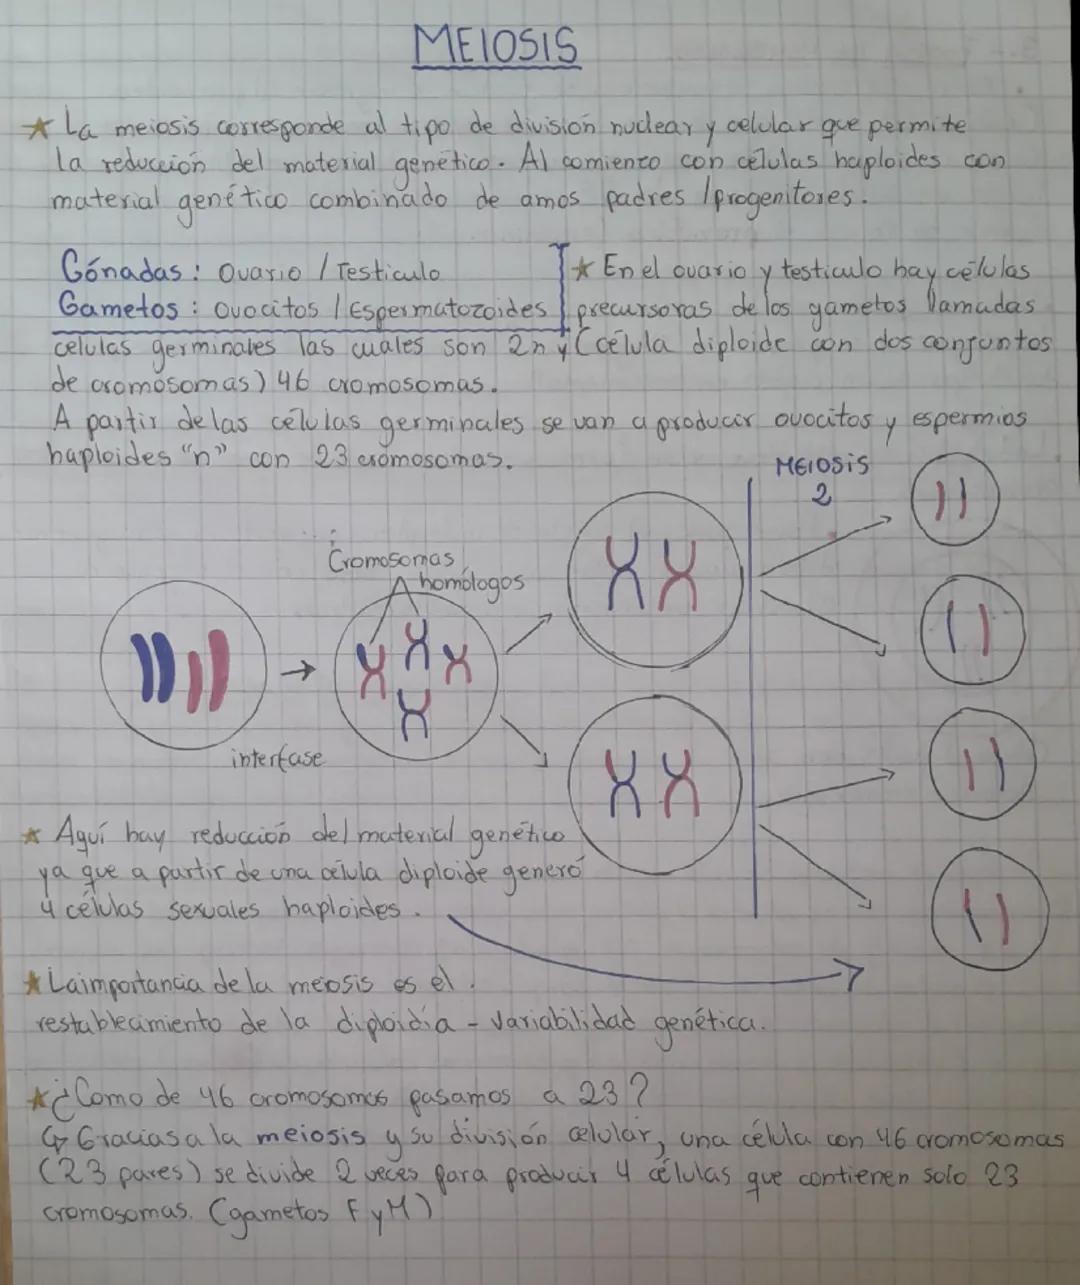 MEIOSIS
★ La meiosis corresponde al tipo de división nuclear y celular que permite
la reducción del material genético. Al comienzo con células haploides con
material genético combinado de amos padres / progenitores.
Gónadas: Ovario / Testiculo
Gametos: Ovocitos / Espermatozoides
★ En el ovario y testiculo hay células
precursoras de los gametos llamadas
celulas germinales las cuales son 2n y (celula diploide con dos conjuntos
de cromosomas) 46 cromosomas.
A partir de las células germinales se van a producir ovocitos y espermios
haploides "n" con 23 cromosomas.
MEIOSIS
2
Cromosomas
homólogos
interfase
★ Aquí hay reducción del material genético
ya que a partir de una celula diploide generó
4 celulas sexuales haploides.
★ La importancia de la meiosis es el
restablecimiento de la diploidía - variabilidad genética.
★ ¿Como de 46 cromosomas pasamos a 23?
↳ Gracias a la meiosis y su división celular, una célula con 46 cromosomas
(23 pares) se divide 2 veces para producir 4 células que contienen solo 23
cromosomas. (gametos F y M)